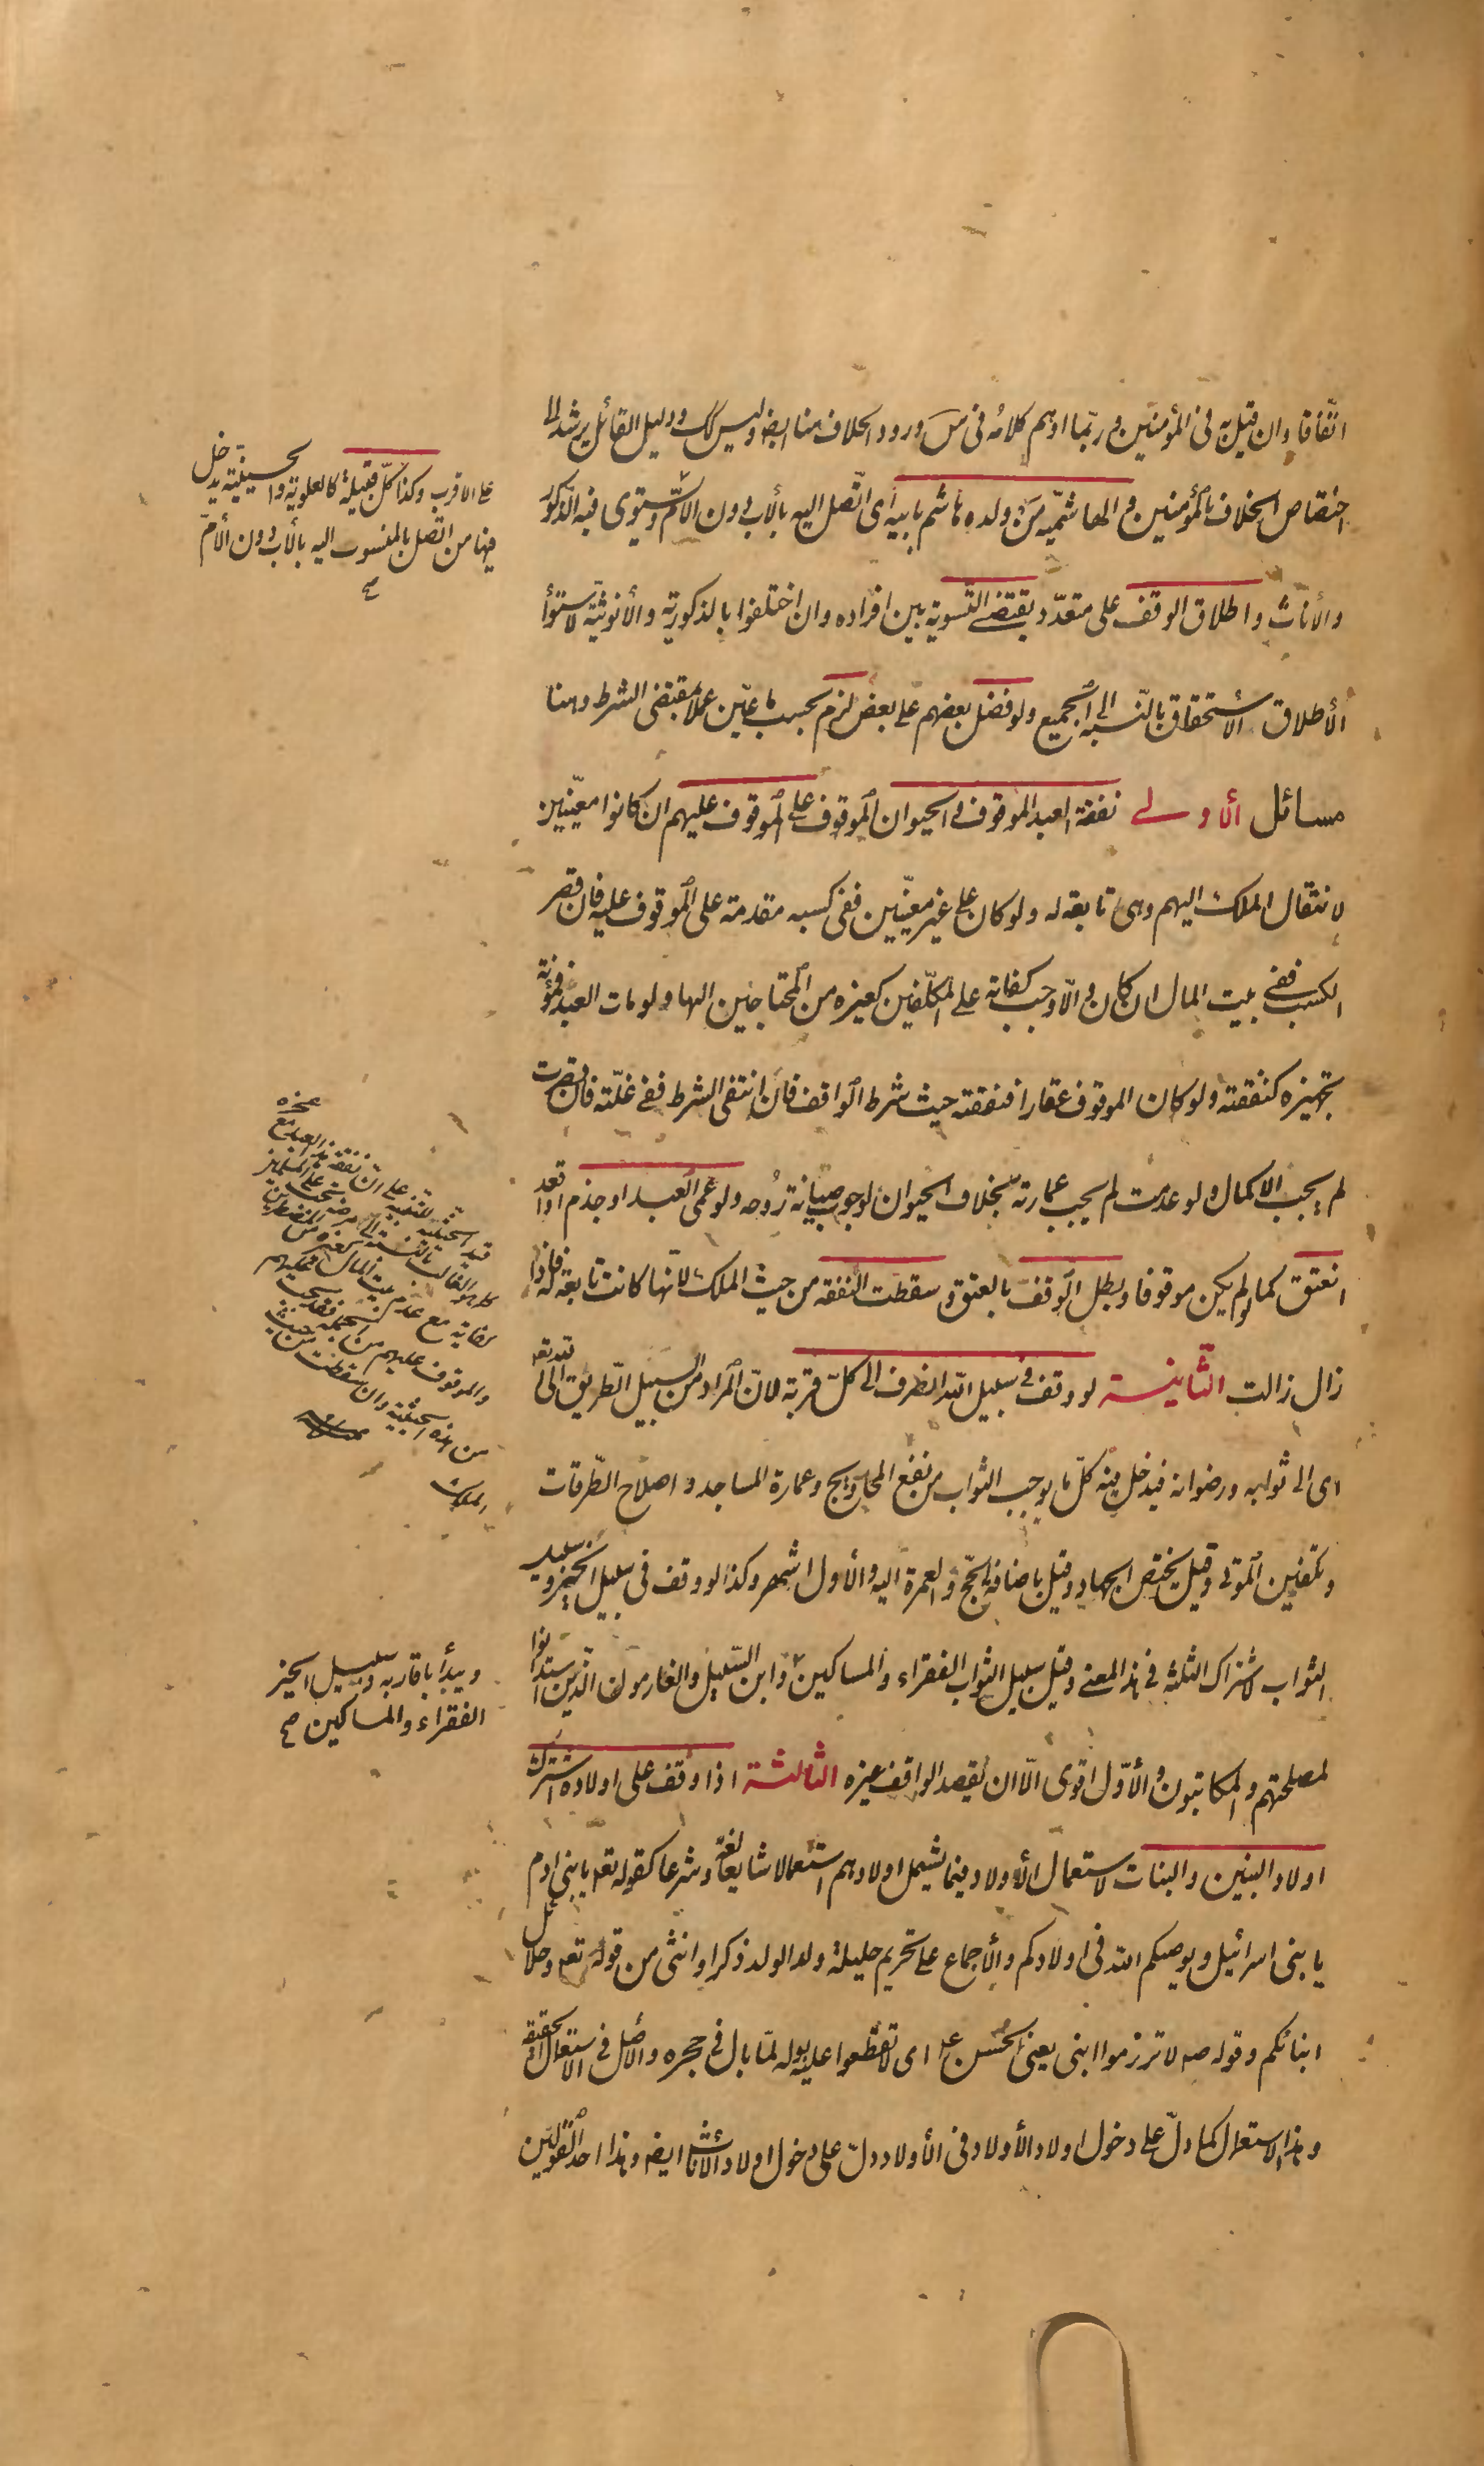 اتّفاقا وان قيل به فى المؤمنين و ربّما اوهم كلامه فى س ورود الخلاف هنا ايضا وليس كك ودليل القائل يرشد الى
اختصاص الخلاف بالمؤمنين و الهاشميّة من ولده هاشم بابيه اى اتّصل اليه بالأب دون الأمّ ويستوى فيه الذّكور
والأناث و اطلاق الوقف على متعدّد يقتضى التّسوية بين افراده وان اختلفوا بالذكورية والأنوثية لاستوأ
الأطلاق الاستحقاق بالنّسبة الى الجميع ولو فضل بعضهم على بعض لزم بحسب ما عيّن عملا بمقتضى الشرط وهنا
مسائل الأولى نفقة العبد الموقوف و الحيوان الموقوف على الموقوف عليهم ان كانوا معيّنين
لانتقال الملك اليهم وهى تابعة له ولو كان على غير معيّنين ففى كسبه مقدمة على الموقوف عليه فان قصر
الكسب ففى بيت المال ان كان و الّا وجب كفاية على المكلّفين كغيره من المحتاجين اليها ولو مات العبد فمؤنة
تجهيزه كنفقته ولو كان الموقوف عقارا فنفقته حيث شرط الواقف فان انتفى الشرط ففى غلّته فان قصرت
لم يجب الاكمال ولو عدمت لم يجب عمارته بخلاف الحيوان لوجوب صيانة روحه ولو عمى العبد او جذم او اقعد
انعتق كما لو لم يكن موقوفا و بطل الوقف بالعتق و سقطت النفقه من حيث الملك لانّها كانت تابعة له فاذا
زال زالت الثّانية لو وقف فى سبيل اللّه انصرف الى كلّ قربة لانّ المراد من السبيل الطّريق الى اللّه تعه
اى الى ثوابه ورضوانه فيدخل فيه كلّ ما يوجب الثواب من نفع المحاويج وعمارة المساجد و اصلاح الطّرقات
وتكفين الموتى وقيل يختص الجهاد وقيل باضافة الحجّ والعمرة اليه والأول اشهر وكذا لو وقف فى سبيل الخير وسبيل
الثواب لاشتراك الثلثة فى هذا المعنى وقيل سبيل الثواب الفقراء والمساكين وابن السّبيل والغارمون الّذين استدانوا
لمصلحتهم والمكاتبون والأوّل اقوى الّا ان يقصد الواقف غيره الثالثة اذا وقف على اولاده اشترك
اولاد البنين والبنات لاستعمال الأولاد فيما يشمل اولادهم استعمالا شايعا لغة وشرعا كقوله تعه يا بنى ادم
يا بنى اسرائيل ويوصيكم اللّه فى اولادكم والأجماع على تحريم حليلة ولد الولد ذكرا وانثى من قوله تعه وحلائل
ابنائكم وقوله صه لا تزرموا ابنى يعنى الحسن ع اى لا تقطّعوا عليه بوله لمّا بال فى حجره والاصل فى الاستعمال الحقيقة
وهذا الاستعمال كما دلّ على دخول اولاد الأولاد فى الأولاد دلّ على دخول اولاد الأناث ايضا وهذا احد القولين
على الاقرب وكذا كلّ قبيلة كالعلوية والحسينيّة يدخل
فيها من اتّصل بالمنسوب اليه بالأب دون الأمّ
صح
ويبدأ باقاربه وسبيل الخير
الفقراء والمساكين صح